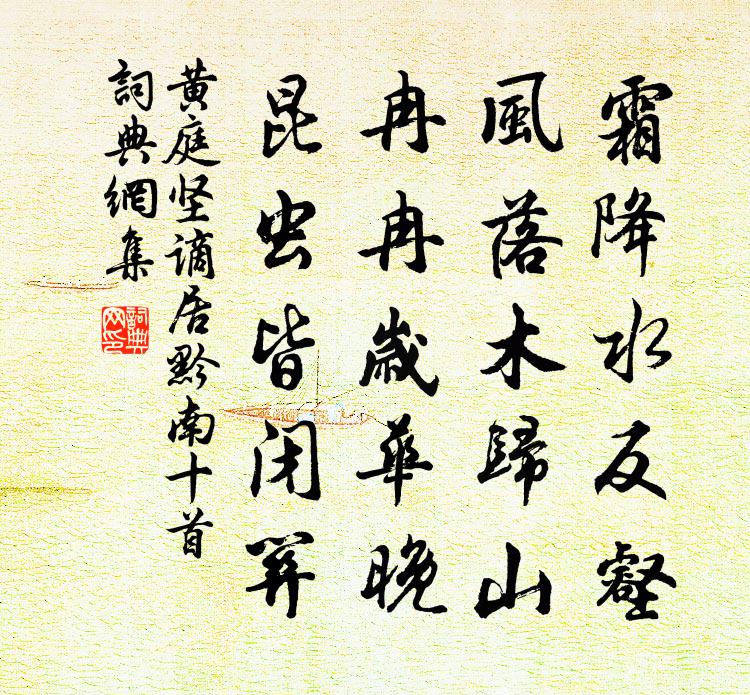 霜降水反壑
風落木歸山
冉冉歲華晚
昆虫皆闭關
黄庭坚謫居黔南十首
詞典網集
詞典
网印